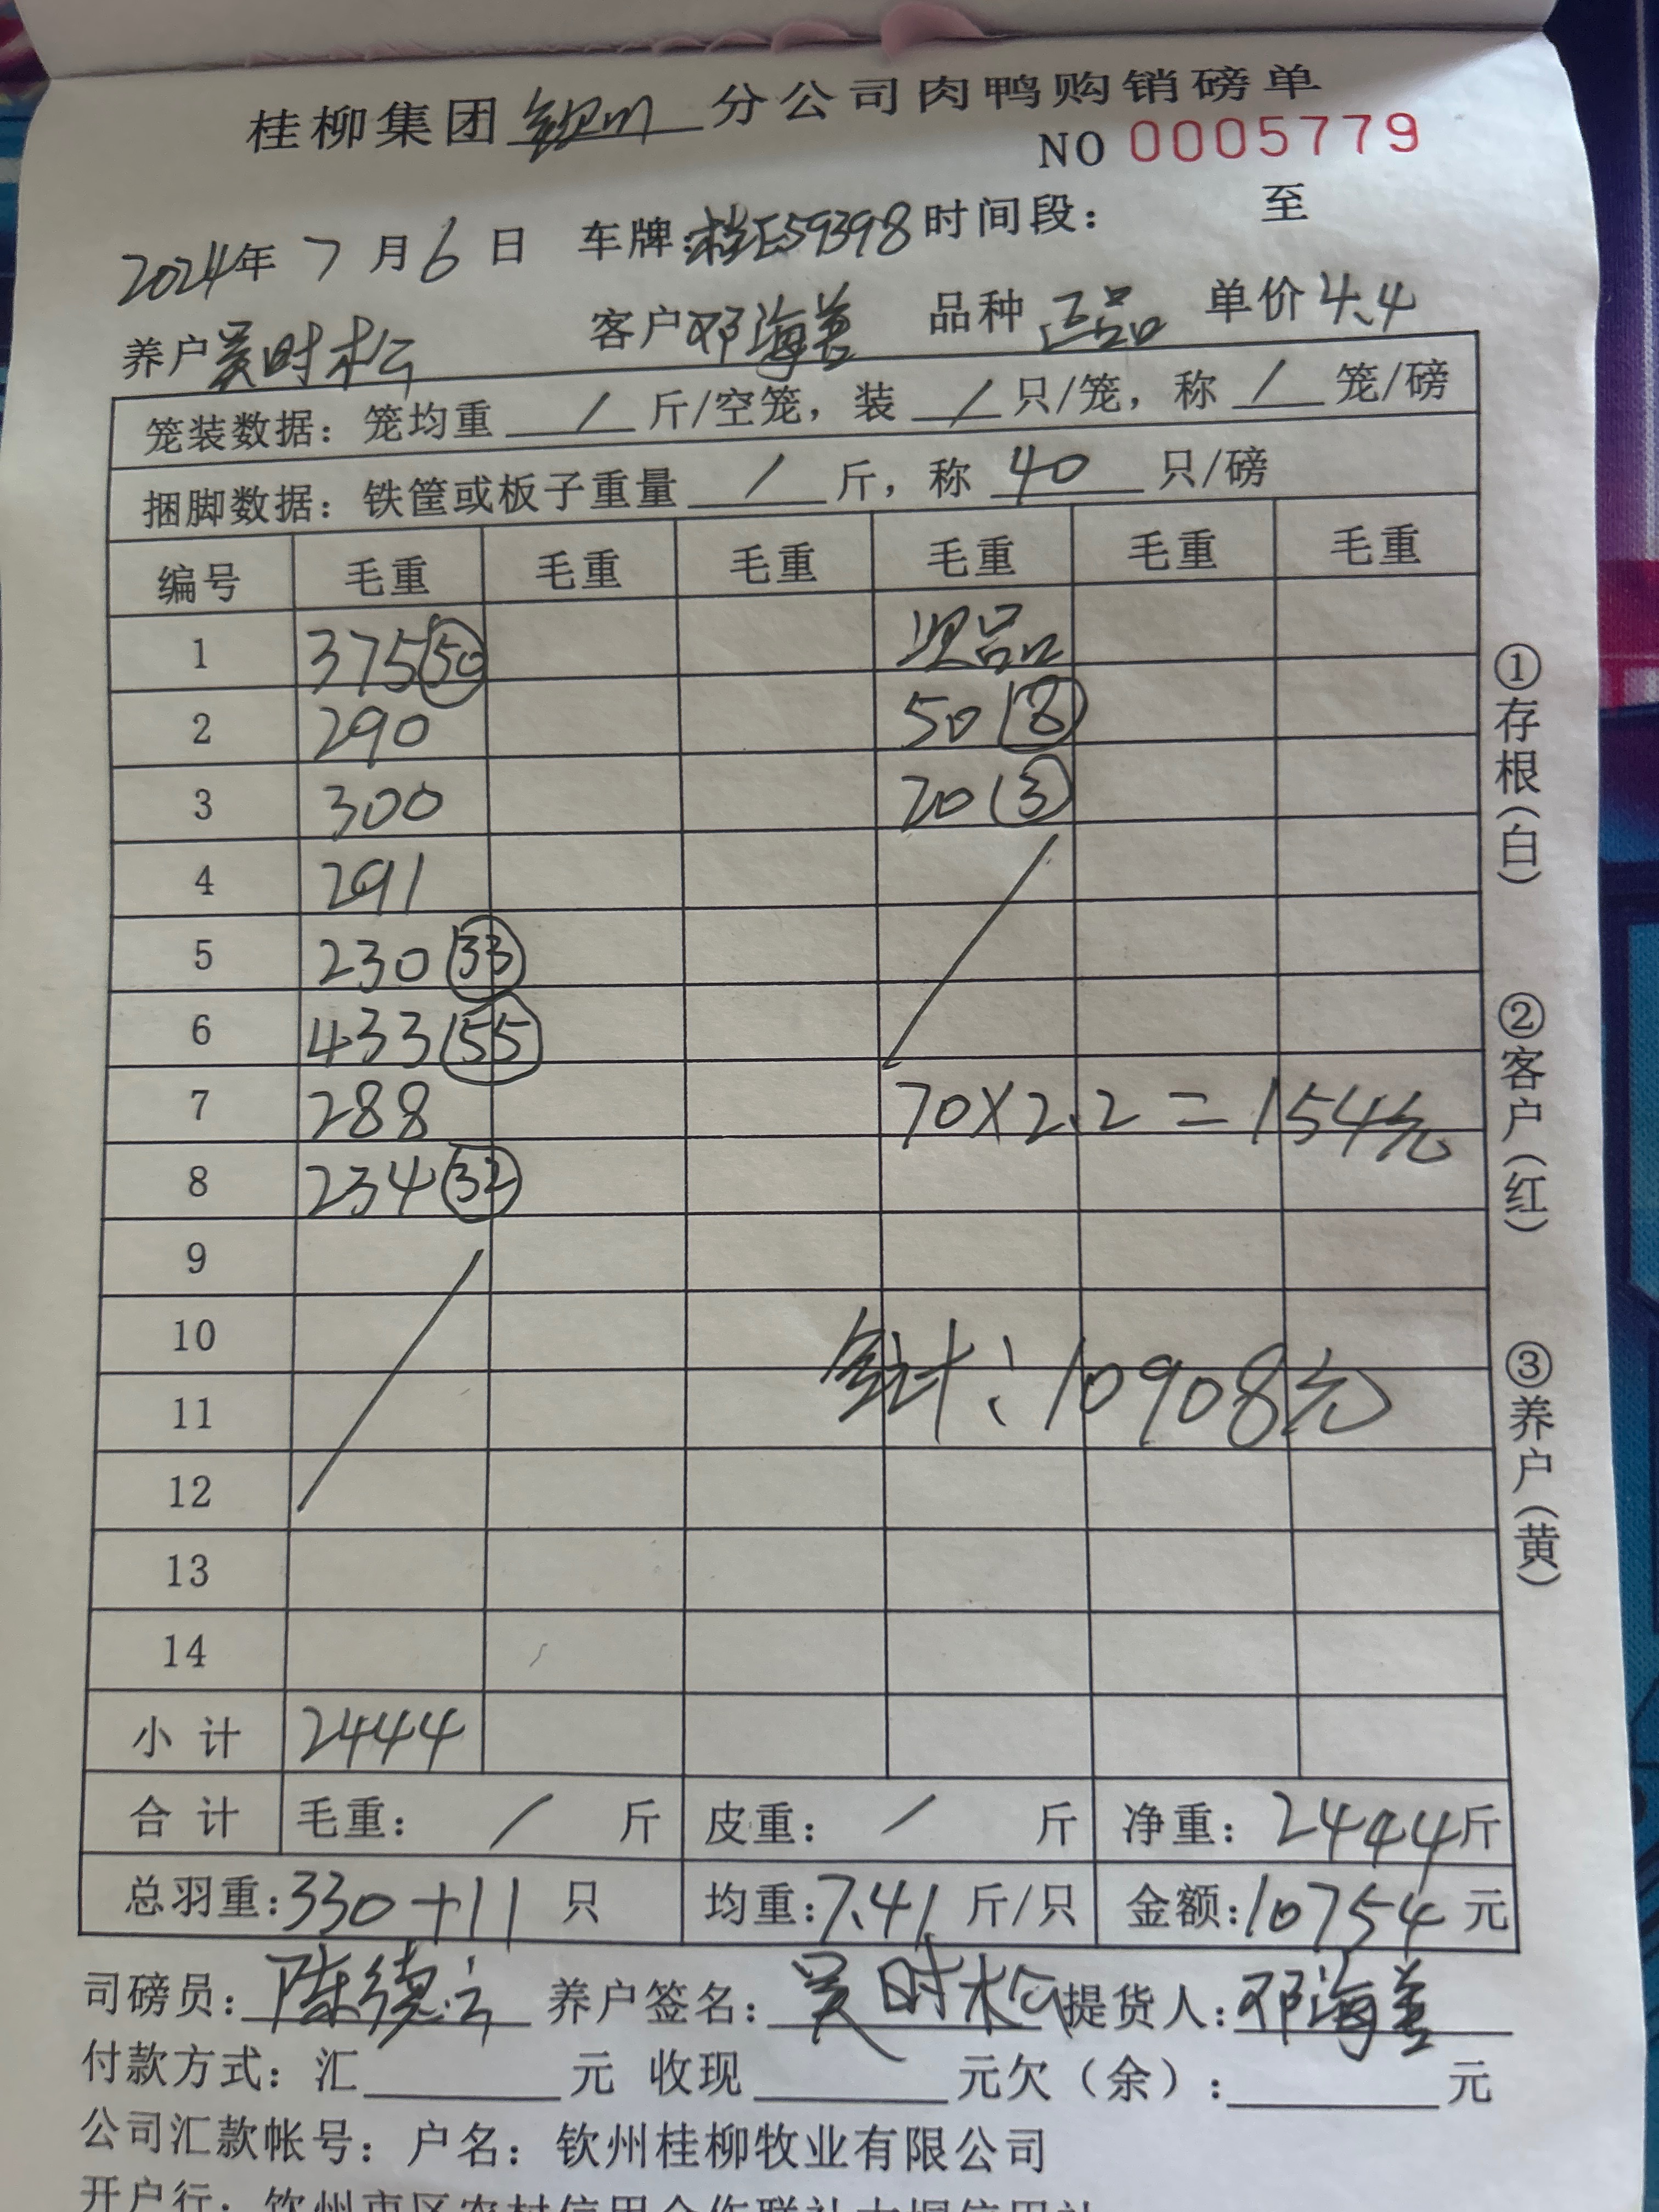 桂柳集团钦州分公司肉鸭购销磅单
NO 0005779
2024年 7 月 6 日 车牌:桂E59398 时间段: 至
养户 吴时松 客户 邓海善 品种 正品 单价 4.4
笼装数据:笼均重 / 斤/空笼,装 / 只/笼,称 / 笼/磅
捆脚数据:铁筐或板子重量 / 斤,称 40 只/磅
编号 毛重 毛重 毛重 毛重 毛重 毛重
1 375(50) 次品
2 290 50(8)
3 300 20(3)
4 291
5 230(33)
6 433(55)
7 288 70×2.2=154元
8 234(32)
9
10
11 合计:10908元
12
13
14
小计 2444
合计 毛重: / 斤 皮重: / 斤 净重:2444斤
总羽重:330+11 只 均重:7.41 斤/只 金额:10754 元
司磅员:陈德 养户签名:吴时松 提货人:邓海善
付款方式:汇 元 收现 元欠(余): 元
公司汇款帐号:户名:钦州桂柳牧业有限公司
开户行:钦州市区农村信用合作联社大垌信用社
①存根(白) ②客户(红) ③养户(黄)